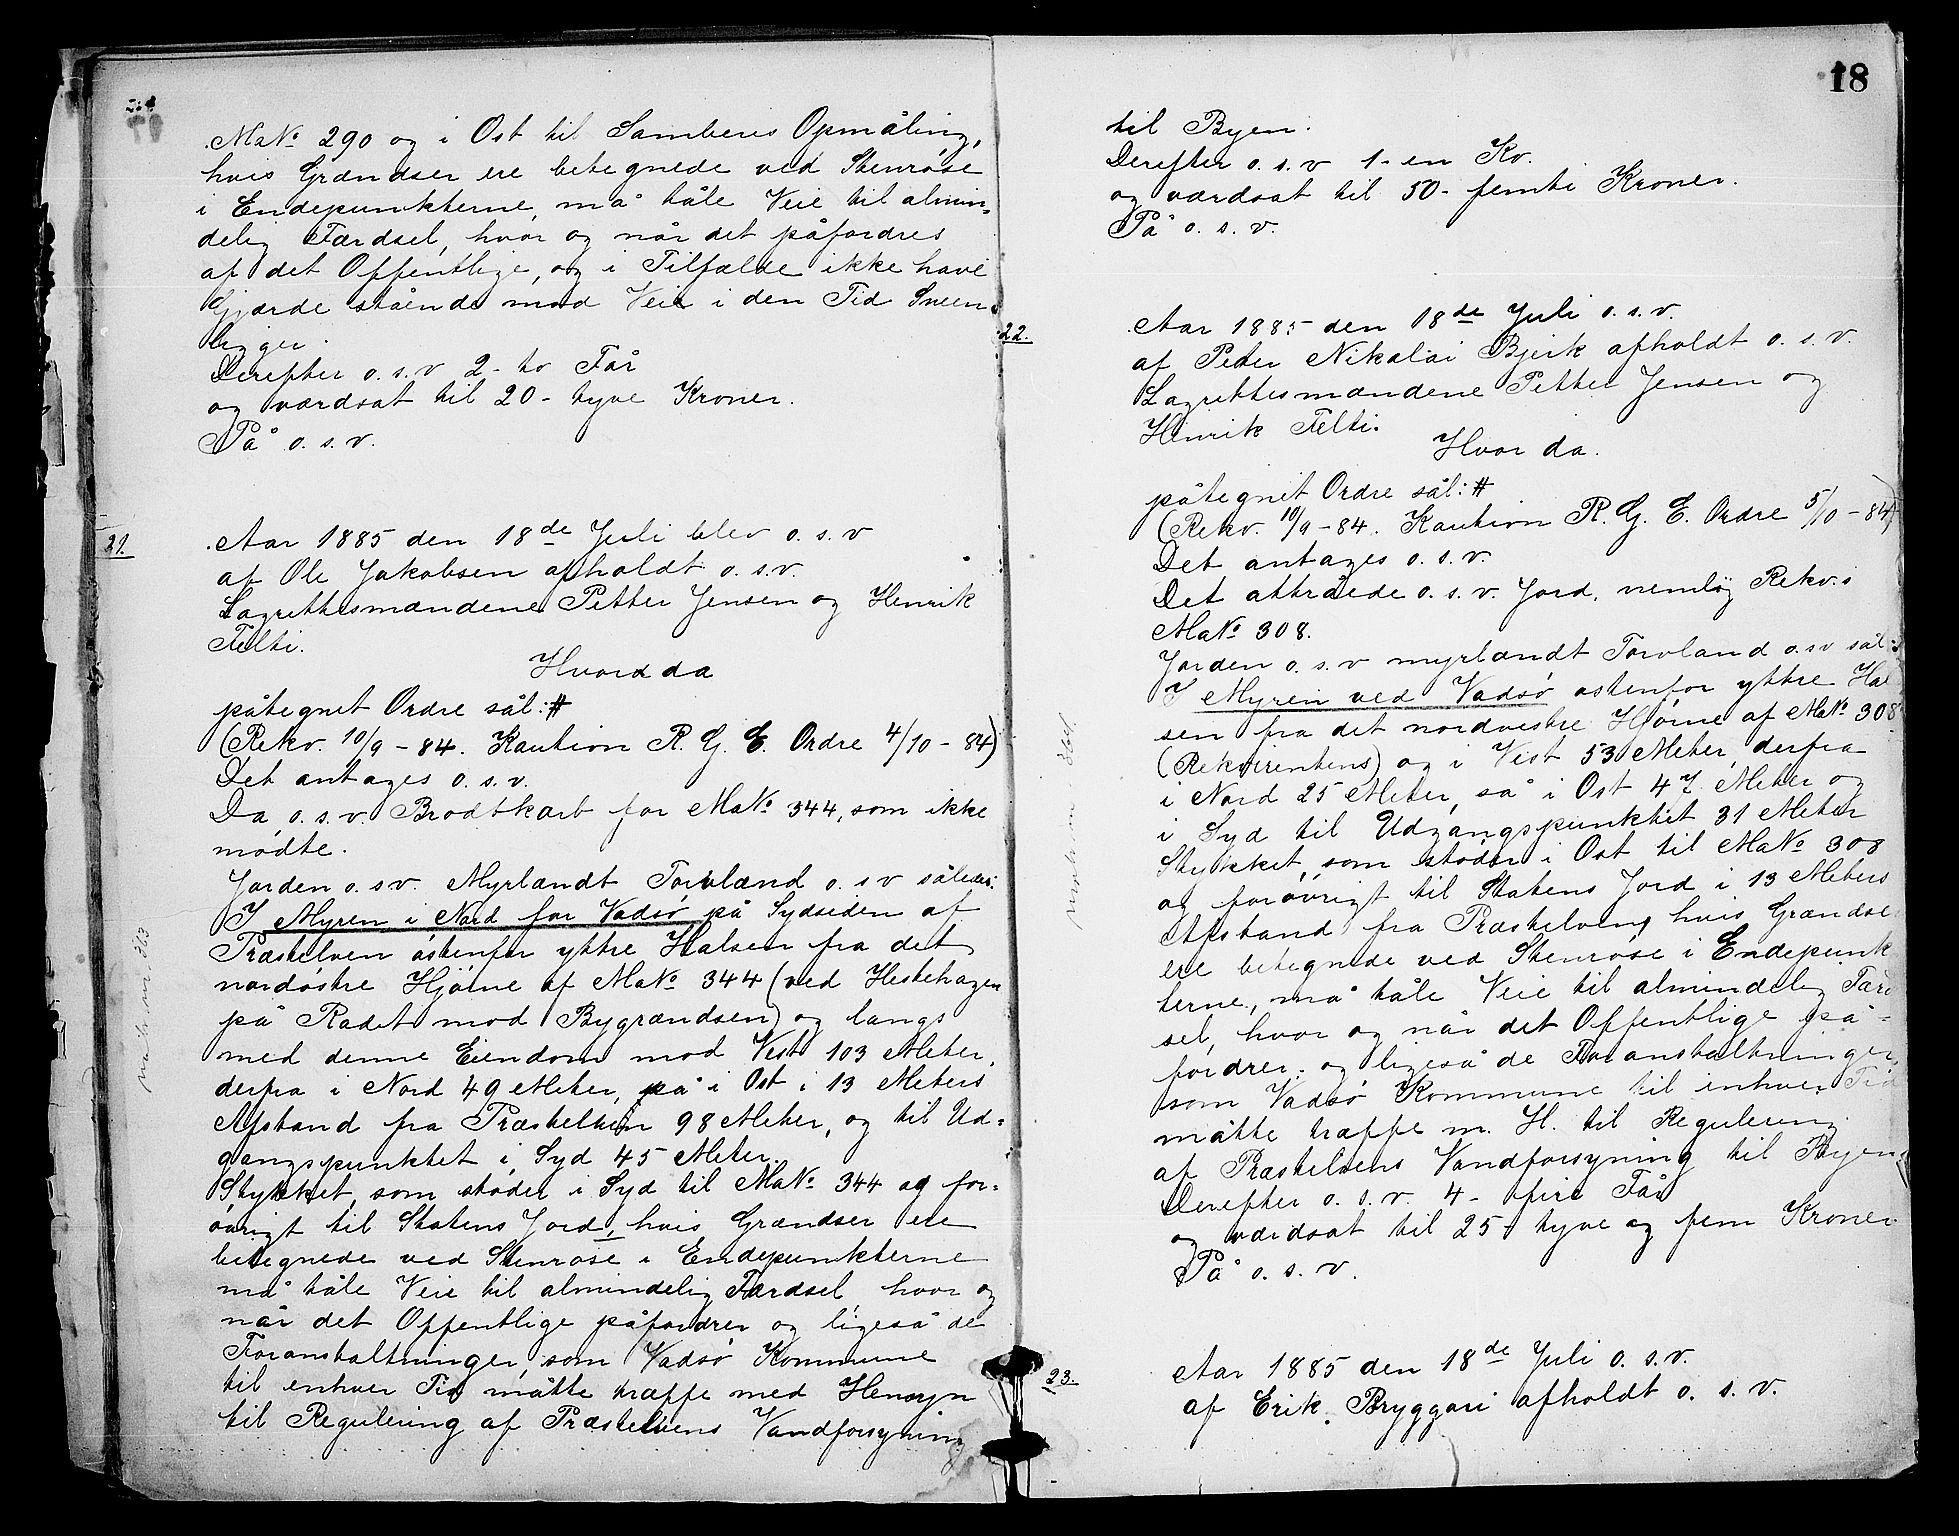 MaNo 290 og i Ost til Sambens Opmåling,
hvis Grændser ere betegnede ved Stenrøse
i Endepunkterne, må tåle Veie til almin-
delig Færdsel, hvor og når det påfordres
af det Offentlige, og i Tilfælde ikke have
Gjærde stående mod Veie i den Tid Sneen
ligger.
Derefter o. s. v 2 - to Får
og værdsat til 20 - tyve Kroner.
På o. s. v.
21.
Aar 1885 den 18de Juli blev o. s. v
af Ole Jakobsen afholdt o. s. v.
Lagrettesmændene Petter Jensen og Henrik
Felti.
Hvor da
påtegnet Ordre sål: #
(Rekv. 10/9 - 84. Kaution R. G. E. Ordre 4/10 - 84)
Det antages o. s. v.
Da o. s. v. Brodtkorb for MaNo 344, som ikke
mødte.
Jorden o. s v. Myrlændt Torvland o. s v således:
I Myren i Nord for Vadsø på Sydsiden af
Præstelven østenfor yttre Halsen fra det
nordøstre Hjørne af MaNo 344 (ved Hestehagen
på Radet mod Bygrændsen) og langs
med denne Eiendom mod Vest 103 Meter,
derfra i Nord 49 Meter, så i Ost i 13 Meters
Afstand fra Præstelven 98 Meter, og til Ud-
gangspunktet i Syd 45 Meter.
Stykket, som støder i Syd til MaNo 344 og for-
øvrigt til Statens Jord, hvis Grændser ere
betegnede ved Stenrøse i Endepunkterne
må tåle Veie til almindelig Færdsel hvor og
når det Offentlige påfordrer og ligeså de
Foranstaltninger, som Vadsø Kommune
til enhver Tid måtte træffe med Hensyn
til Regulering af Præstelvens Vandforsyning
18
til Byen.
Derefter o. s. v 1 - en Ko.
og værdsat til 50 - femti Kroner.
På o. s. v.
22.
Aar 1885 den 18de Juli o. s. v.
af Peder Nikolai Bjerk afholdt o. s. v.
Lagrettesmændene Petter Jensen og
Hinrik Felti.
Hvor da.
påtegnet Ordre sål: #
(Rekv. 10/9 - 84. Kaution R. G. E. Ordre 5/10 - 84)
Det antages o. s. v.
Det attråede o. s. v. Jord, nemlig Rekv.s
MaNo 308.
Jorden o. s. v myrlændt Torvland o. s v sål:
I Myren ved Vadsø østenfor yttre Hal
sen fra det nordvestre Hjørne af MaNo 308
(Rekvirentens) og i Vest 53 Meter, derfra
i Nord 25 Meter, så i Ost 47 Meter og
i Syd til Udgangspunktet 31 Meter
Stykket, som støder i Ost til MaNo 308
og forøvrigt til Statens Jord i 13 Meters
Afstand fra Præstelven, hvis Grændse
ere betegnede ved Stenrøse i Endepunk
terne, må tåle Veie til almindelig Færd
sel, hvor og når det Offentlige på-
fordrer, og ligeså de Foranstaltninger,
som Vadsø Kommune til enhver Tid
måtte træffe m. H. til Regulering
af Præstelvens Vandforsyning til Byen.
Derefter o. s. v. 4 - fire Får
og værdsat til 25 tyve og fem Kroner.
På o. s. v.
23.
Aar 1885 den 18de Juli o. s. v.
af Erik Bryggari afholdt o. s. v.